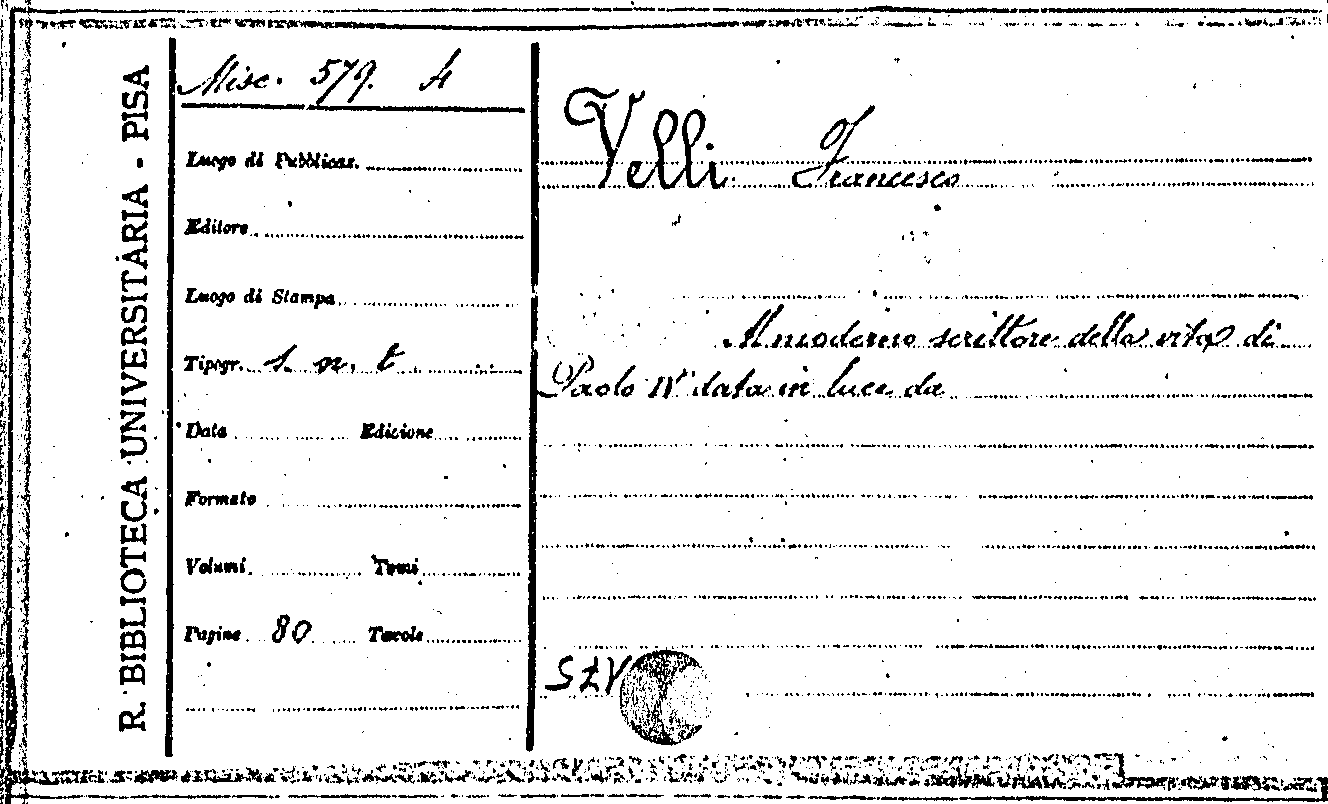 R. BIBLIOTECA UNIVERSITARIA - PISA
Misc. 579. 4
Luogo di Pubblicaz.
Editore
Luogo di Stampa
Tipogr. s. n. t.
Data Edizione
Formato
Volumi Tomi
Pagine 80 Tavole
Velli Francesco
Al moderno scrittore della vita di
Paolo IV data in luce da